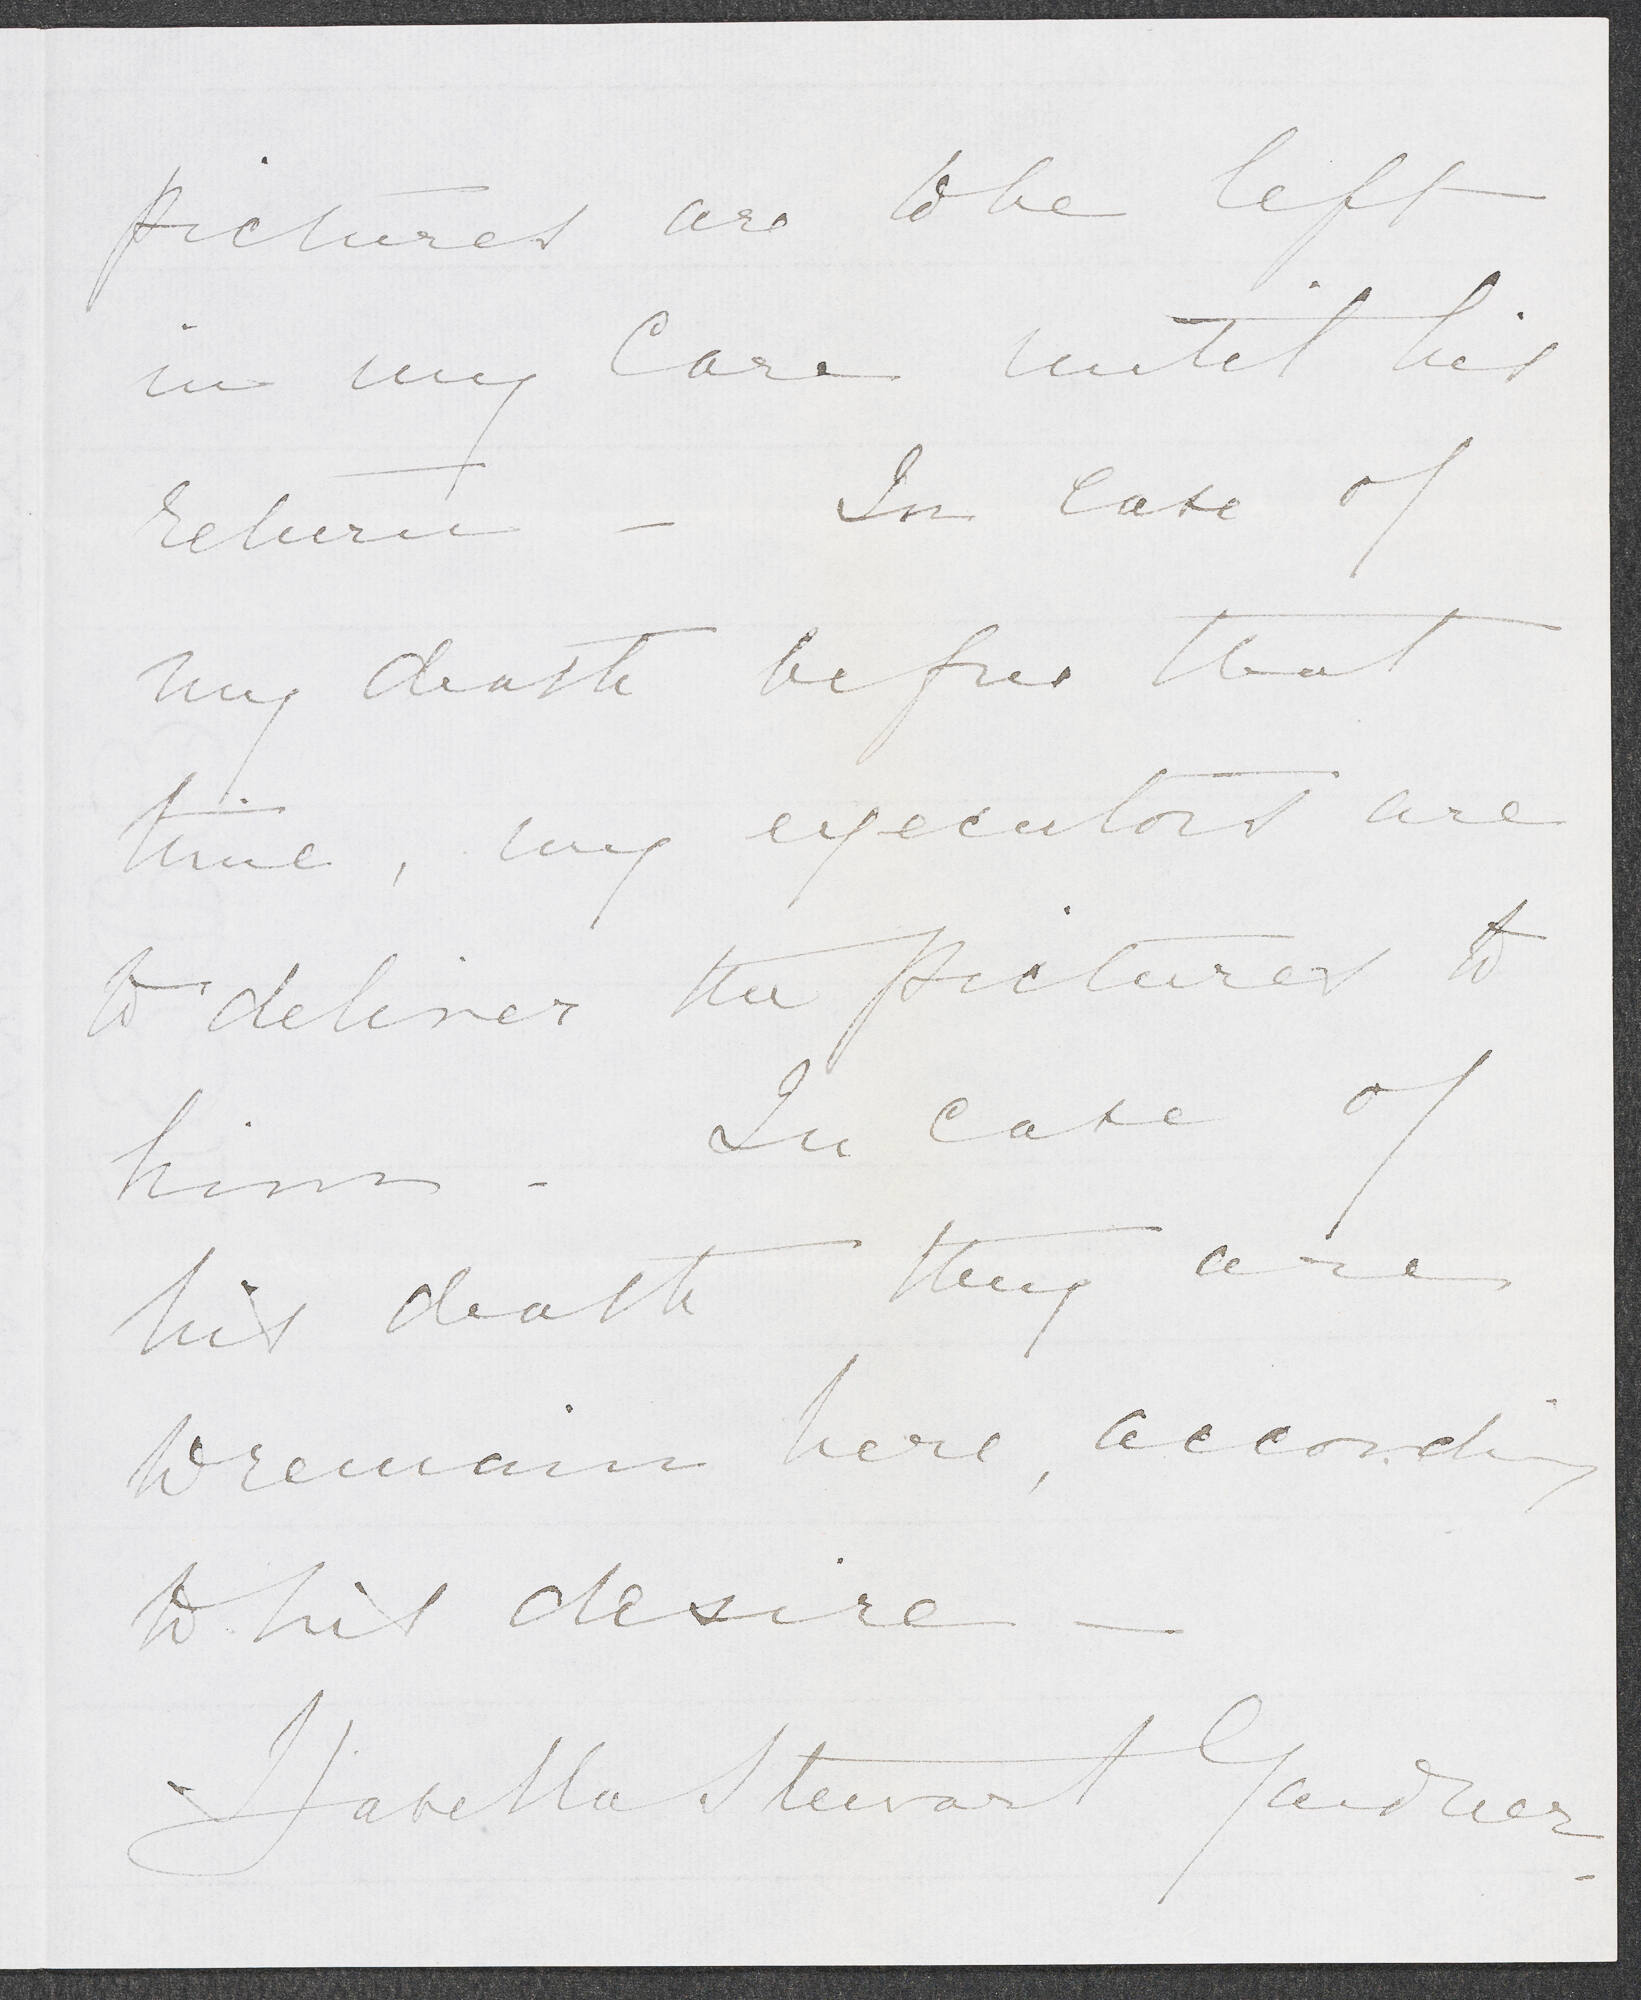 pictures are to be left
in my Care until his
return - In case of
my death before that
time, my executors are
to deliver the pictures to
him - In case of
his death they are
to remain here, according
to his desire -
Isabella Stewart Gardner -